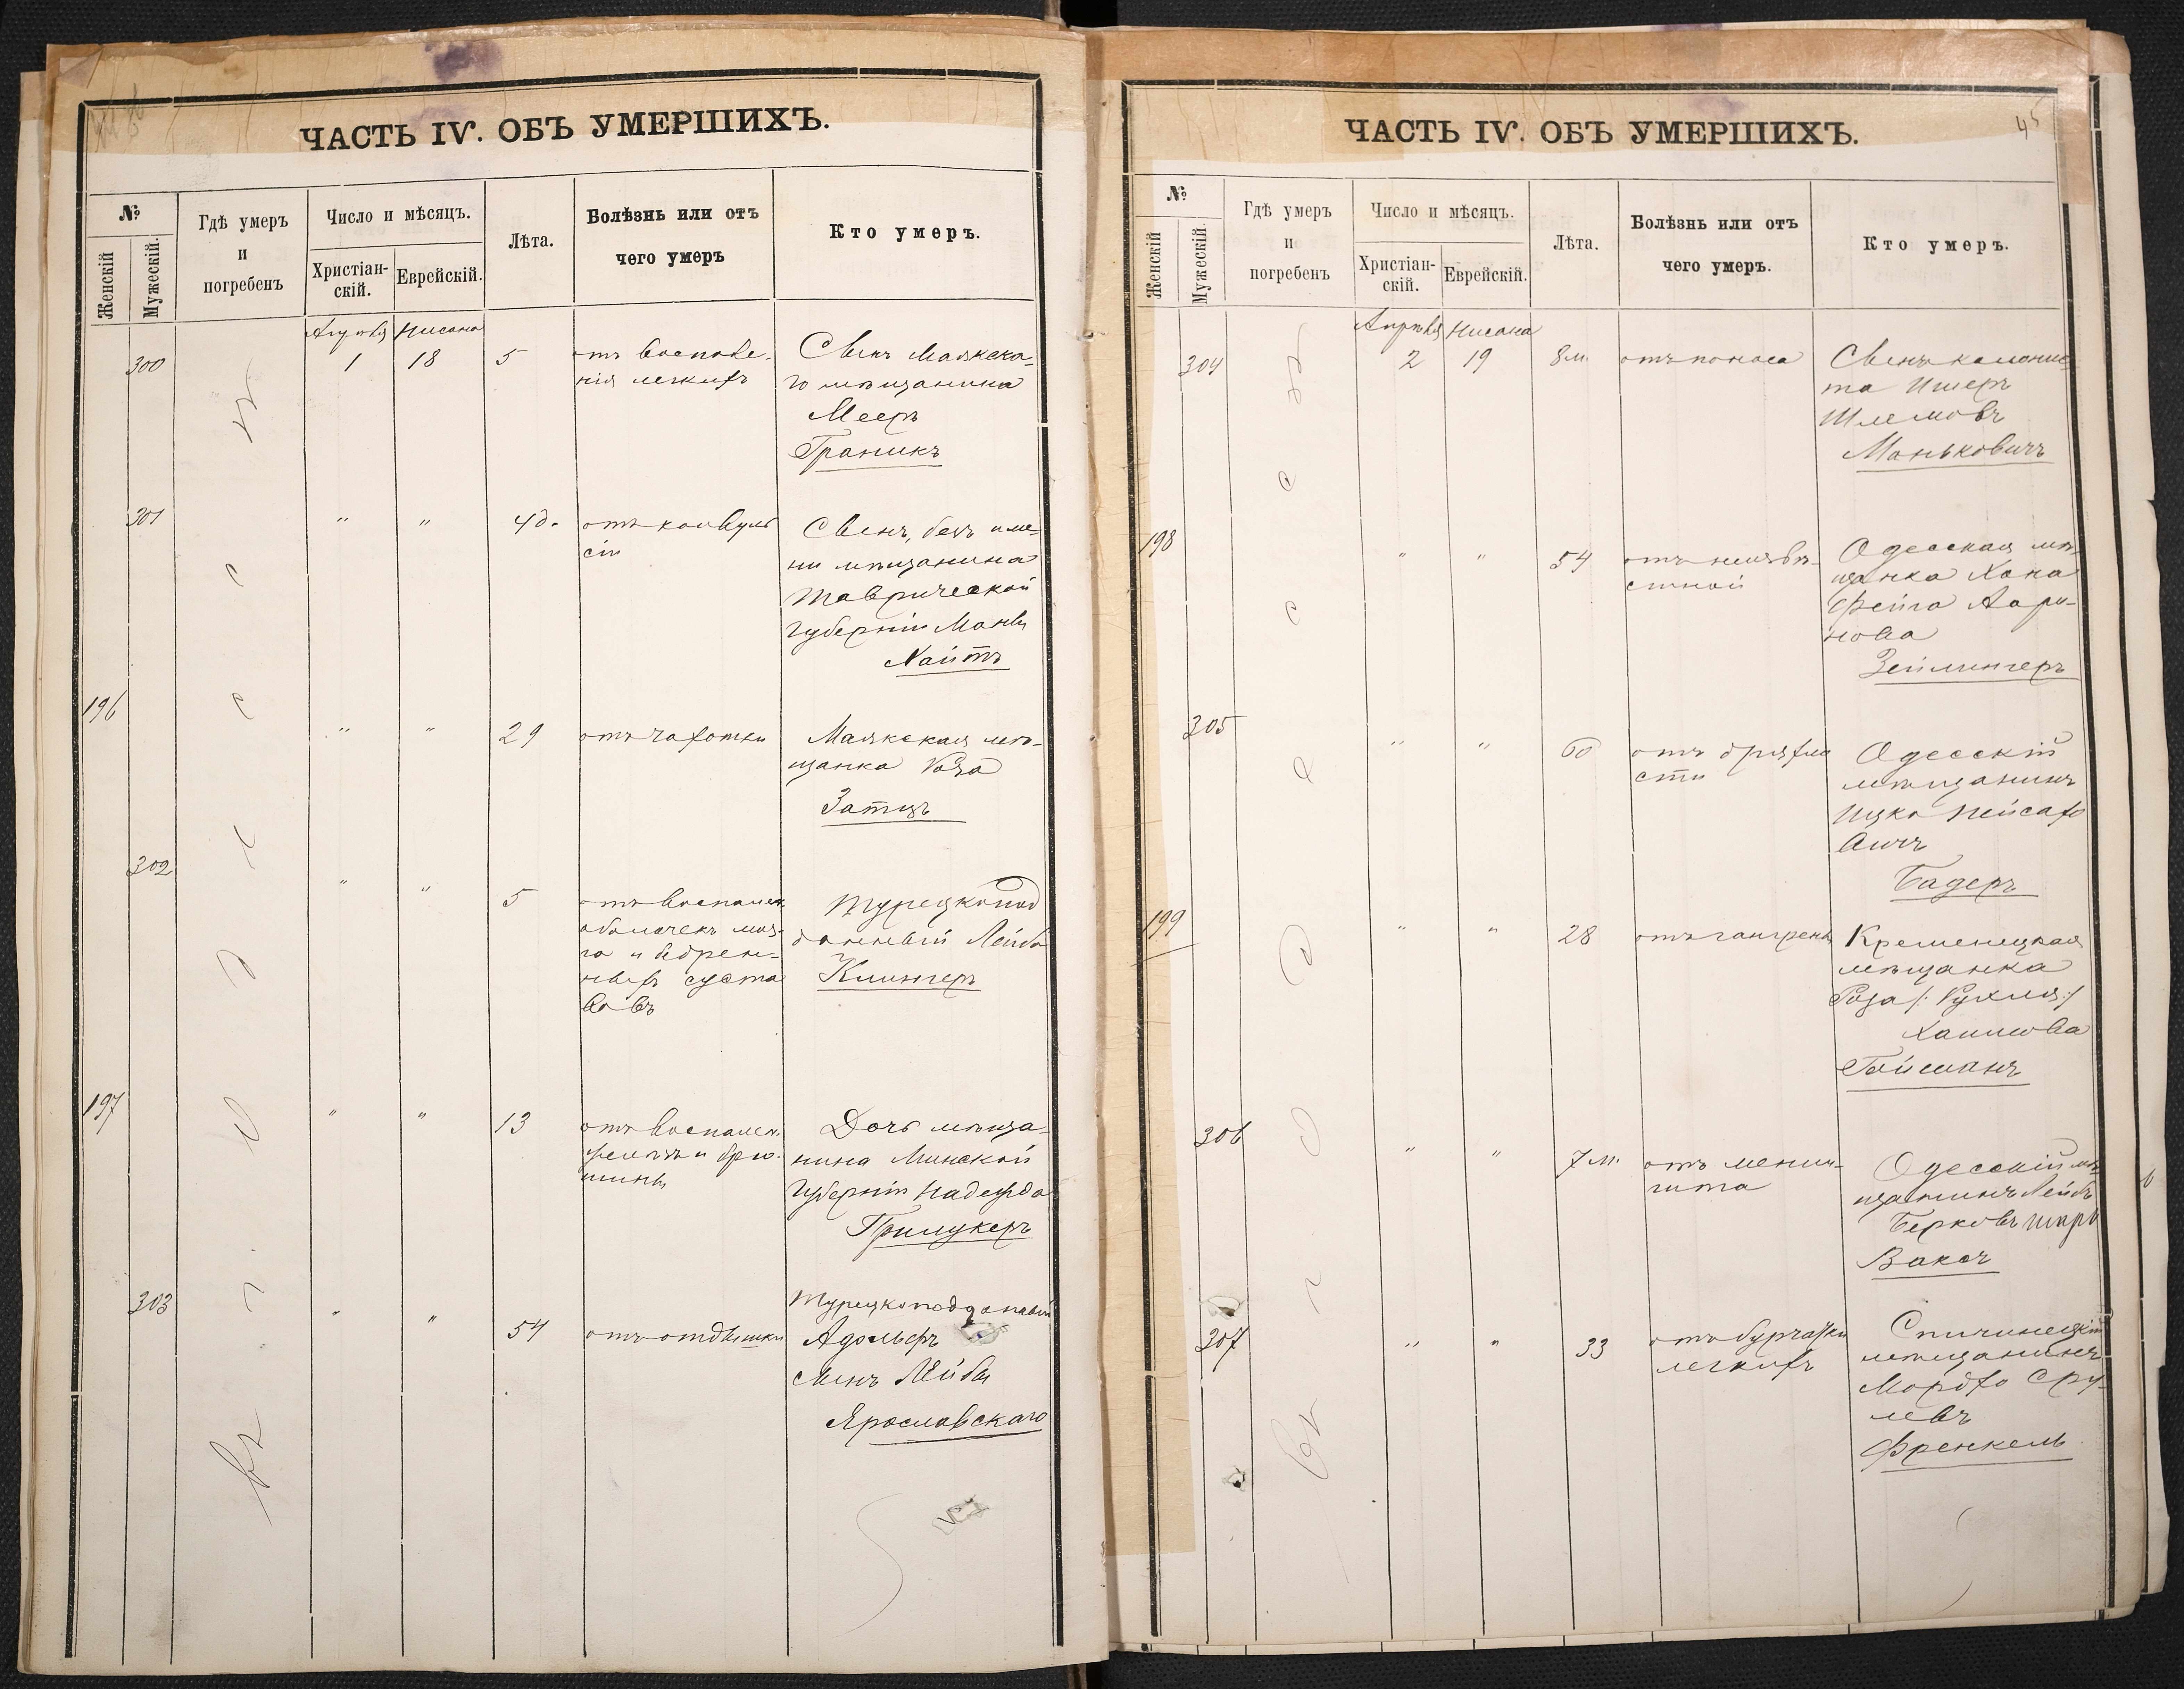 ЧАСТЬ IV. ОБЪ УМЕРШИХЪ.
№
Женскій
Мужескій.
Гдѣ умеръ
и
погребенъ
Число и мѣсяцъ.
Христіан-
скій.
Еврейскій.
Лѣта.
Болѣзнь или отъ
чего умеръ
Кто умеръ.
въ г. Одессѣ
Апрѣля Нисана
300 1 18 5
отъ воспале-
нія легкихъ
Сынъ Маякска-
го мѣщанина
Мееръ
Граникъ
301 " " 4 д.
отъ конвуль
сіи
Сынъ, безъ име-
ни мѣщанина
Таврической
губерніи
Хаитъ
196 " " 29
отъ чахотки
Маякская мѣ-
щанка Роза
Затцъ
302 " " 5
отъ воспален.
оболочекъ моз-
га и бедрен-
ныхъ суста
вовъ
Турецкопод
данный Лейба
Клингеръ
197 " " 13
отъ воспален.
и брю-
шины
Дочь мѣща-
нина Минской
губерніи Надежда
Прилукеръ
303 " " 54
отъ отдышки
Турецкоподданный
Адольфъ
сынъ Лейбы
Ярославскаго
ЧАСТЬ IV. ОБЪ УМЕРШИХЪ.
45
№
Женскій
Мужескій.
Гдѣ умеръ
и
погребенъ
Число и мѣсяцъ.
Христіан-
скій.
Еврейскій.
Лѣта.
Болѣзнь или отъ
чего умеръ.
Кто умеръ.
въ г. Одессѣ
Апрѣля Нисана
304 2 19 8 м.
отъ поноса
Сынъ колонис
та Ишеръ
Шлемовъ
Маньковичъ
198 " " 54
отъ неизвѣ-
стной
Одесская мѣ-
щанка Хана
ФейгаАаро-
нова
Зейлингеръ
305 " " 60
отъ дряхло
сти
Одесскій
мѣщанинъ
Ицко Пейсахо
вичъ
Бадеръ
199 " " 28
отъ гангрены
Кременецкая
мѣщанка
Роза /: Рухля :/
Хаимова
Гойсманъ
306 " " 7 м.
отъ менин-
гита
Одесскій мѣ
щанинъ Лейбъ
Берковъ
Вакъ
307 " " 33
отъ бугорчатки
легкихъ
Спичинецкій
мѣщанинъ
Мордхо Сру-
левъ
Френкель